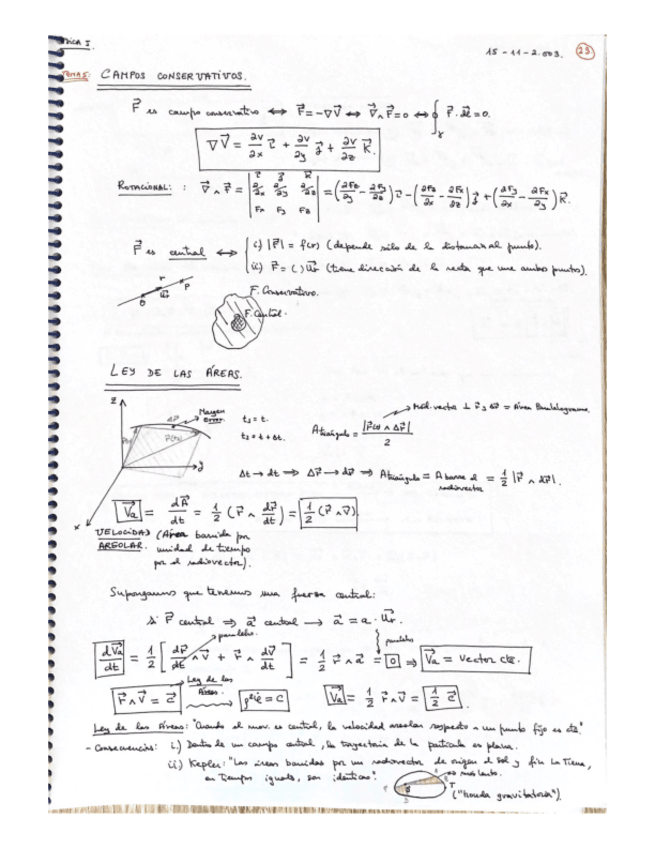 FÍSICA I.
15-11-2.003. 23
TEMA5: CAMPOS CONSERVATIVOS.
F⃗ es campo conservativo ⟺ F⃗ = -∇V⃗ ⟺ ∇⃗∧F⃗ = 0 ⟺ ∮γ F⃗·dl⃗ = 0.
∇V⃗ = ∂V/∂x i⃗ + ∂V/∂y j⃗ + ∂V/∂z k⃗.
ROTACIONAL: : ∇⃗∧F⃗ = | i⃗ j⃗ k⃗ ; ∂/∂x ∂/∂y ∂/∂z ; Fx Fy Fz | = (∂Fz/∂y - ∂Fy/∂z) i⃗ - (∂Fz/∂x - ∂Fx/∂z) j⃗ + (∂Fy/∂x - ∂Fx/∂y) k⃗.
F⃗ es central ⟺ i) |F⃗| = f(r) (depende sólo de la distancia al punto).
ii) F⃗ = ( ) u⃗r (tiene dirección de la recta que une ambos puntos).
O u⃗r r P
F. Conservativo.
F. Central.
LEY DE LAS ÁREAS.
z y x
Δr⃗ Margen error.
r⃗(t)
t₁ = t.
t₂ = t + Δt.
A triángulo = |r⃗(t) ∧ Δr⃗| / 2
Mód. vector ⊥ r⃗ y Δr⃗ = Área Paralelogramo.
Δt → dt ⟹ Δr⃗ → dr⃗ ⟹ A triángulo = A barre el radiovector = 1/2 |r⃗ ∧ dr⃗|.
V⃗a = dA⃗/dt = 1/2 (r⃗ ∧ dr⃗/dt) = 1/2 (r⃗ ∧ v⃗)
VELOCIDAD AREOLAR. (Área barrida por
unidad de tiempo
por el radiovector).
Supongamos que tenemos una fuerza central:
Si F⃗ central ⟹ a⃗ central → a⃗ = a · u⃗r.
paralelos. paralelos
dV⃗a/dt = 1/2 [ dr⃗/dt ∧ v⃗ + r⃗ ∧ dv⃗/dt ] = 1/2 r⃗ ∧ a⃗ = 0 ⟹ V⃗a = vector cte.
r⃗ ∧ v⃗ = c⃗ Ley de las Áreas ρ²φ̇ = C V⃗a = 1/2 r⃗ ∧ v⃗ = 1/2 c⃗.
Ley de las Áreas: "Cuando el mov. es central, la velocidad areolar respecto a un punto fijo es cte."
- Consecuencias: i) Dentro de un campo central, la trayectoria de la partícula es plana.
ii) Kepler: "Las áreas barridas por un radiovector de origen el Sol y fin la Tierra,
en tiempos iguales, son idénticas".
más lento.
("honda gravitatoria").